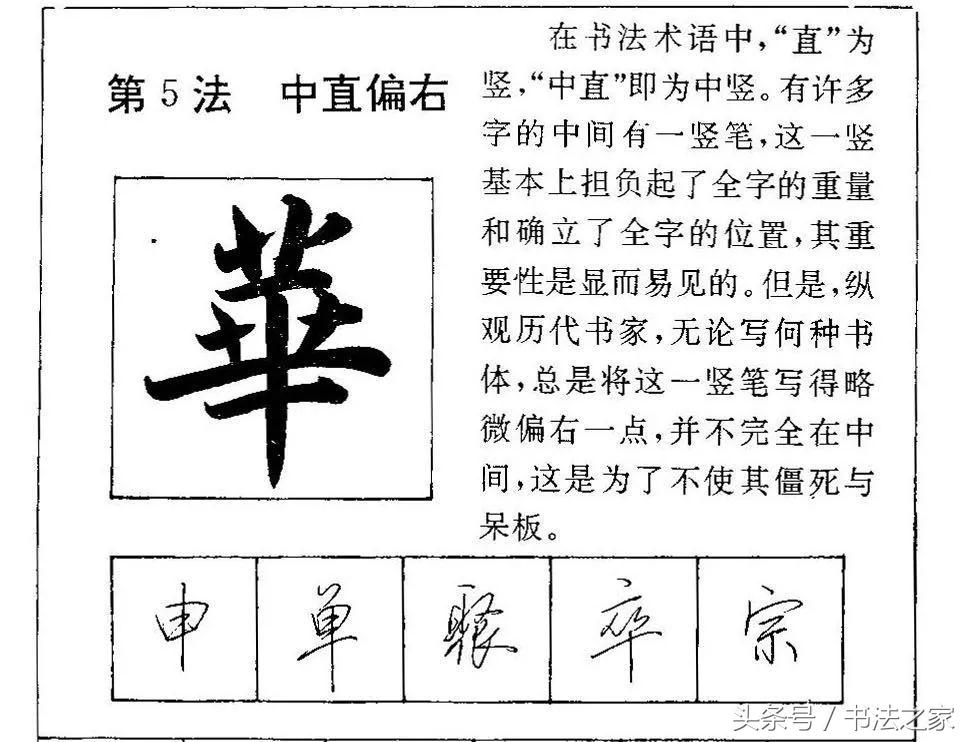 第5法 中直偏右
在书法术语中，“直”为
竖，“中直”即为中竖。有许多
字的中间有一竖笔，这一竖
基本上担负起了全字的重量
和确立了全字的位置，其重
要性是显而易见的。但是，纵
观历代书家，无论写何种书
体，总是将这一竖笔写得略
微偏右一点，并不完全在中
间，这是为了不使其僵死与
呆板。
華
申 单 聚 卒 宗
头条号 / 书法之家